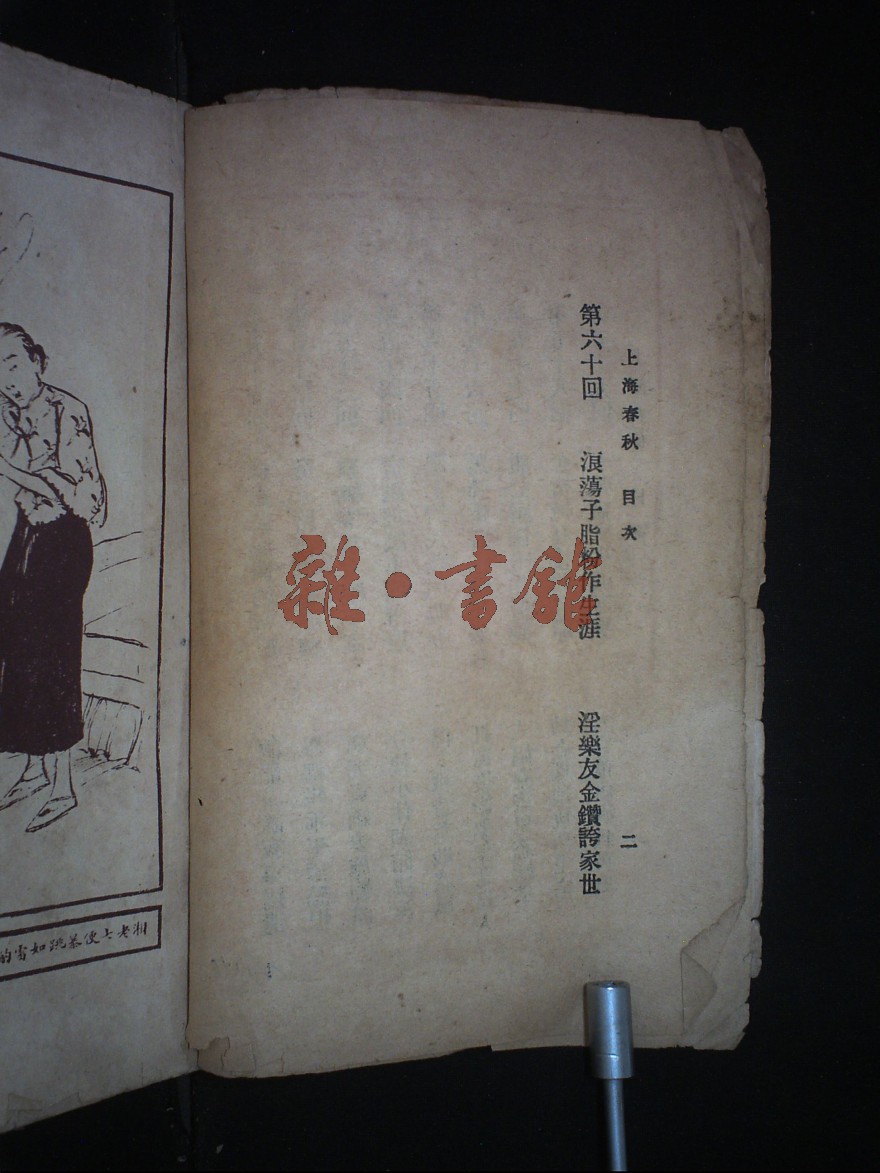 上海春秋 目次 二
第六十回 浪蕩子脂粉作生涯 淫樂友金鑽誇家世
雜·書館
湘老七便暴跳如雷的